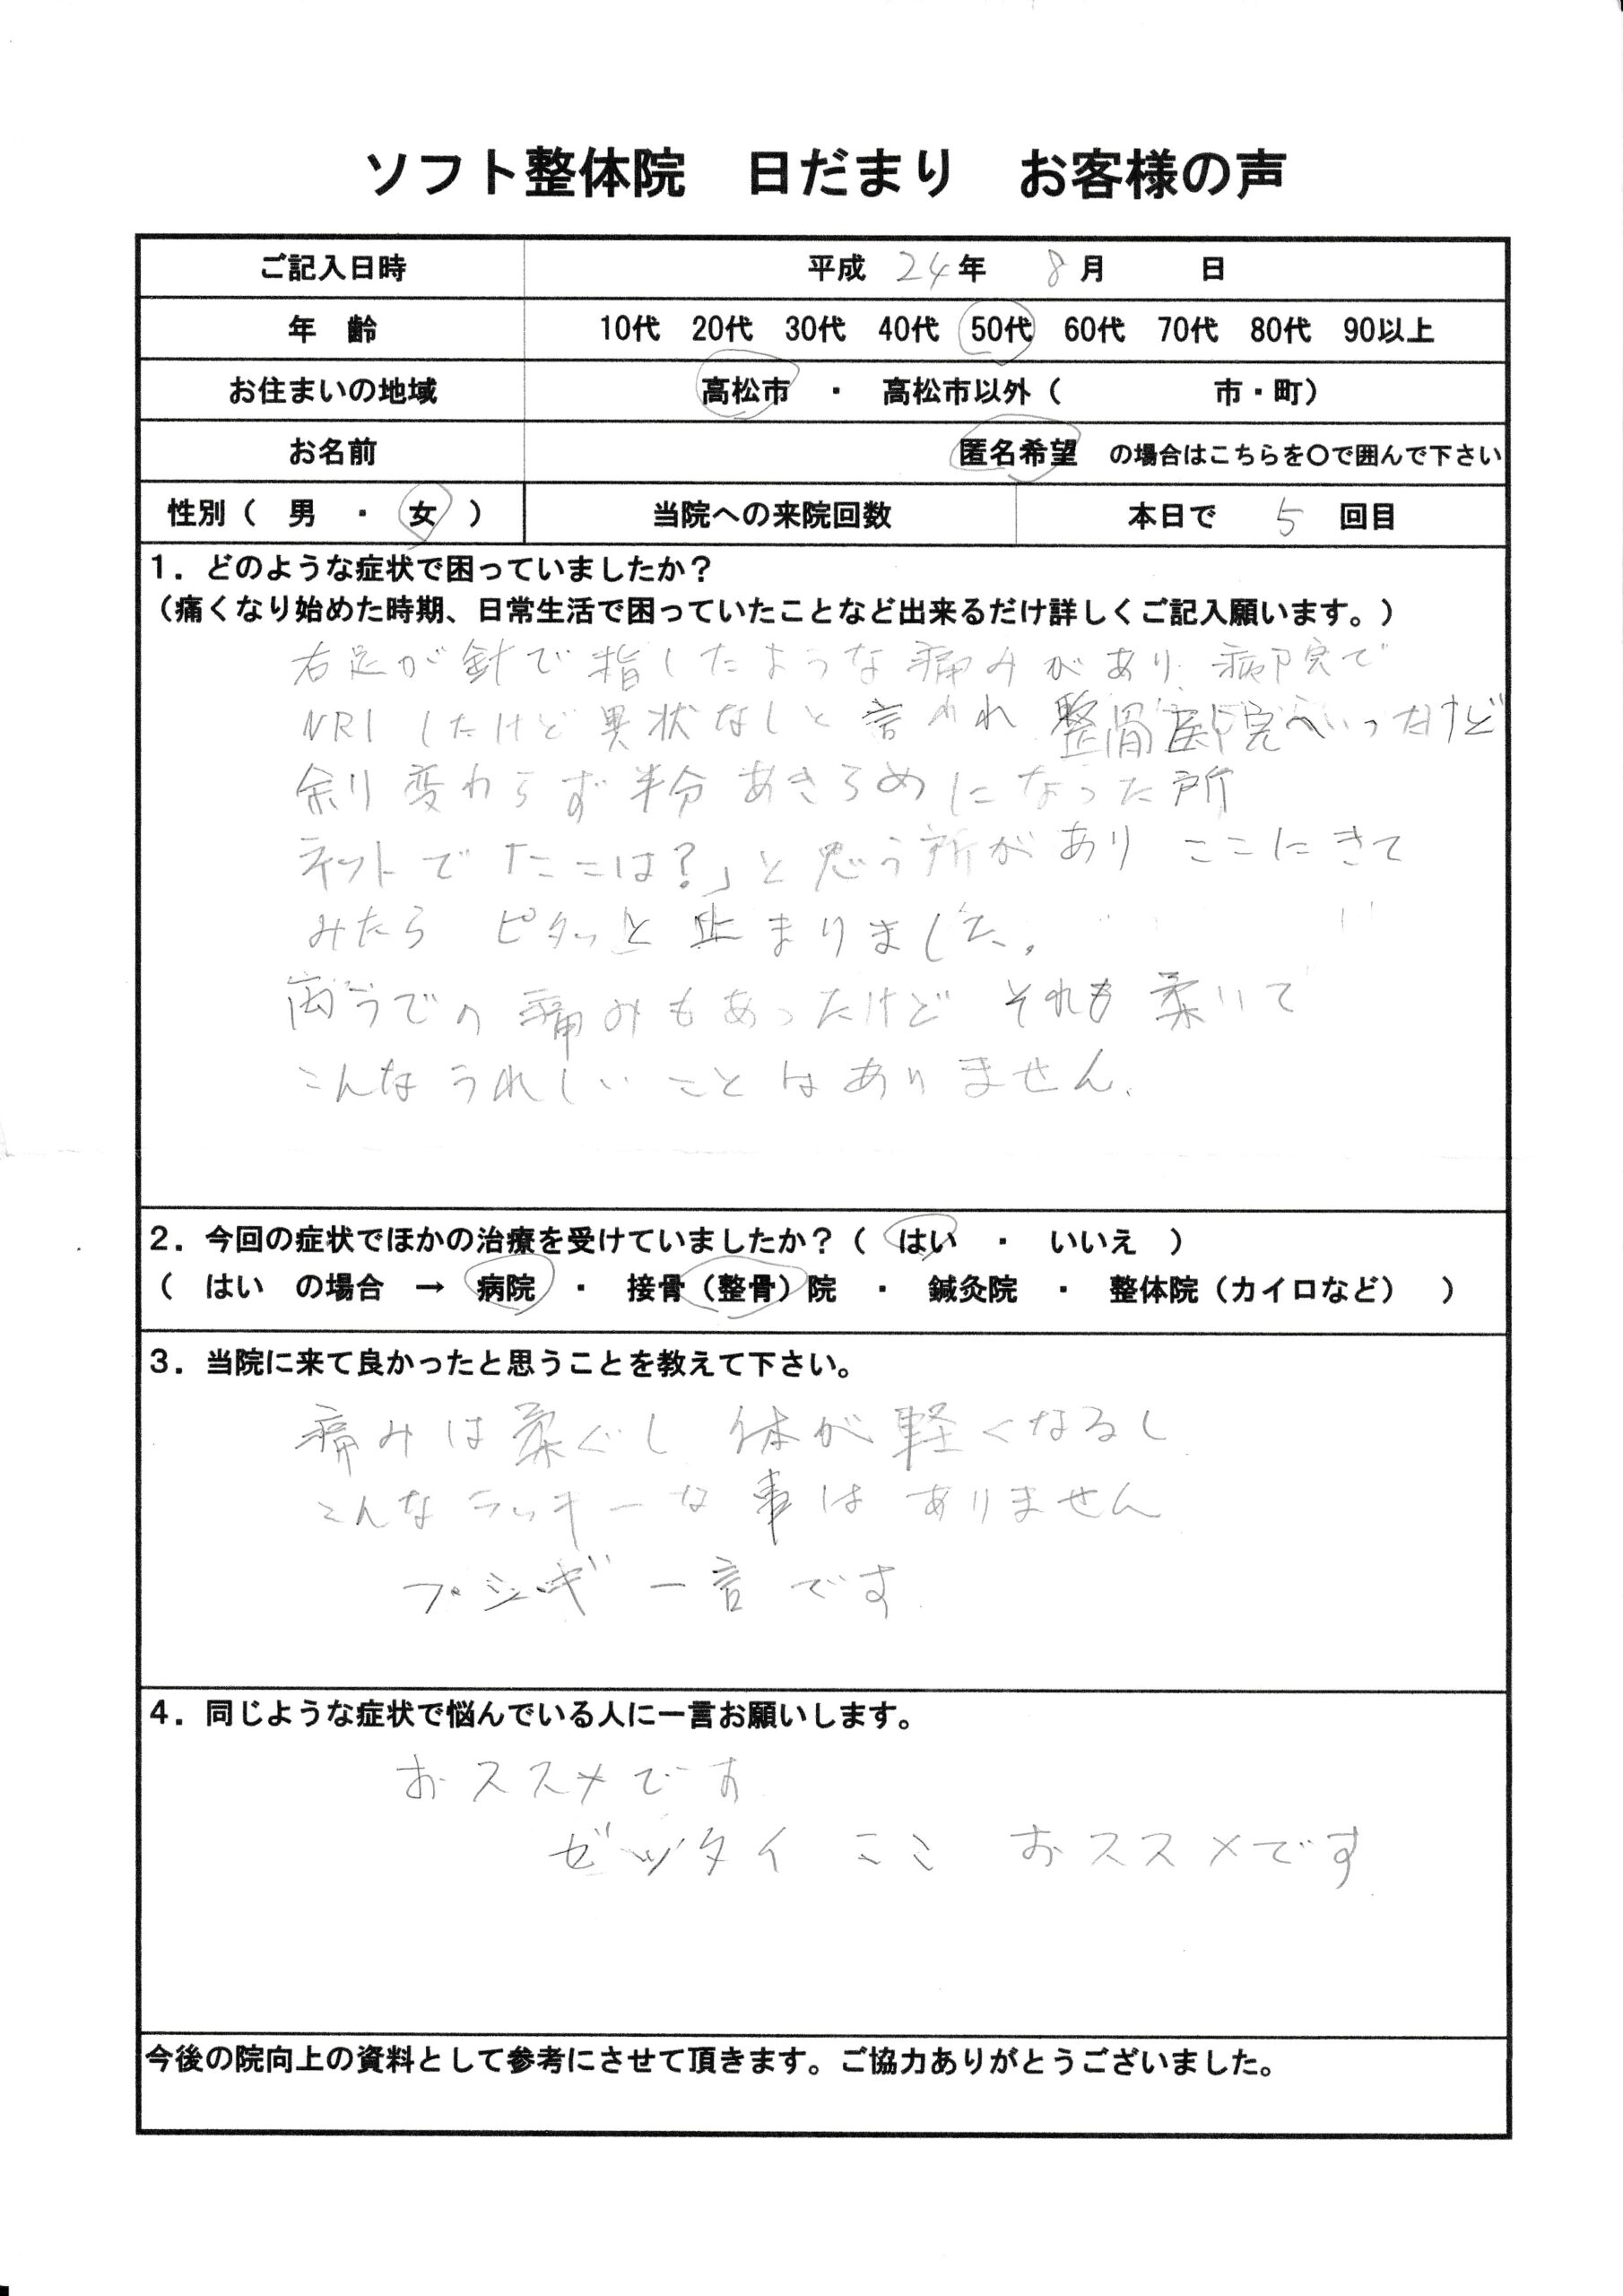 ソフト整体院　日だまり　お客様の声
ご記入日時　平成 24年 8月 日
年　齢　10代 20代 30代 40代 50代 60代 70代 80代 90以上
お住まいの地域　高松市 ・ 高松市以外（ 市・町）
お名前　匿名希望 の場合はこちらを〇で囲んで下さい
性別（ 男 ・ 女 ）　当院への来院回数　本日で 5 回目
1．どのような症状で困っていましたか？
（痛くなり始めた時期、日常生活で困っていたことなど出来るだけ詳しくご記入願います。）
右足が針で指したような痛みがあり 病院で
MRIしたけど異状なしと言われ 整骨院へいったけど
余り変わらず半分あきらめになった所
ネットで「ここは？」と思う所があり ここにきて
みたら ピタッと止まりました。
両うでの痛みもあったけど それも柔いで
こんなうれしいことはありません。
2．今回の症状でほかの治療を受けていましたか？（ はい ・ いいえ ）
（ はい の場合 → 病院 ・ 接骨（整骨）院 ・ 鍼灸院 ・ 整体院（カイロなど） ）
3．当院に来て良かったと思うことを教えて下さい。
痛みは柔ぐし 体が軽くなるし
こんなラッキーな事はありません
フシギ 一言です
4．同じような症状で悩んでいる人に一言お願いします。
おススメです
ゼッタイ ここ おススメです
今後の院向上の資料として参考にさせて頂きます。ご協力ありがとうございました。